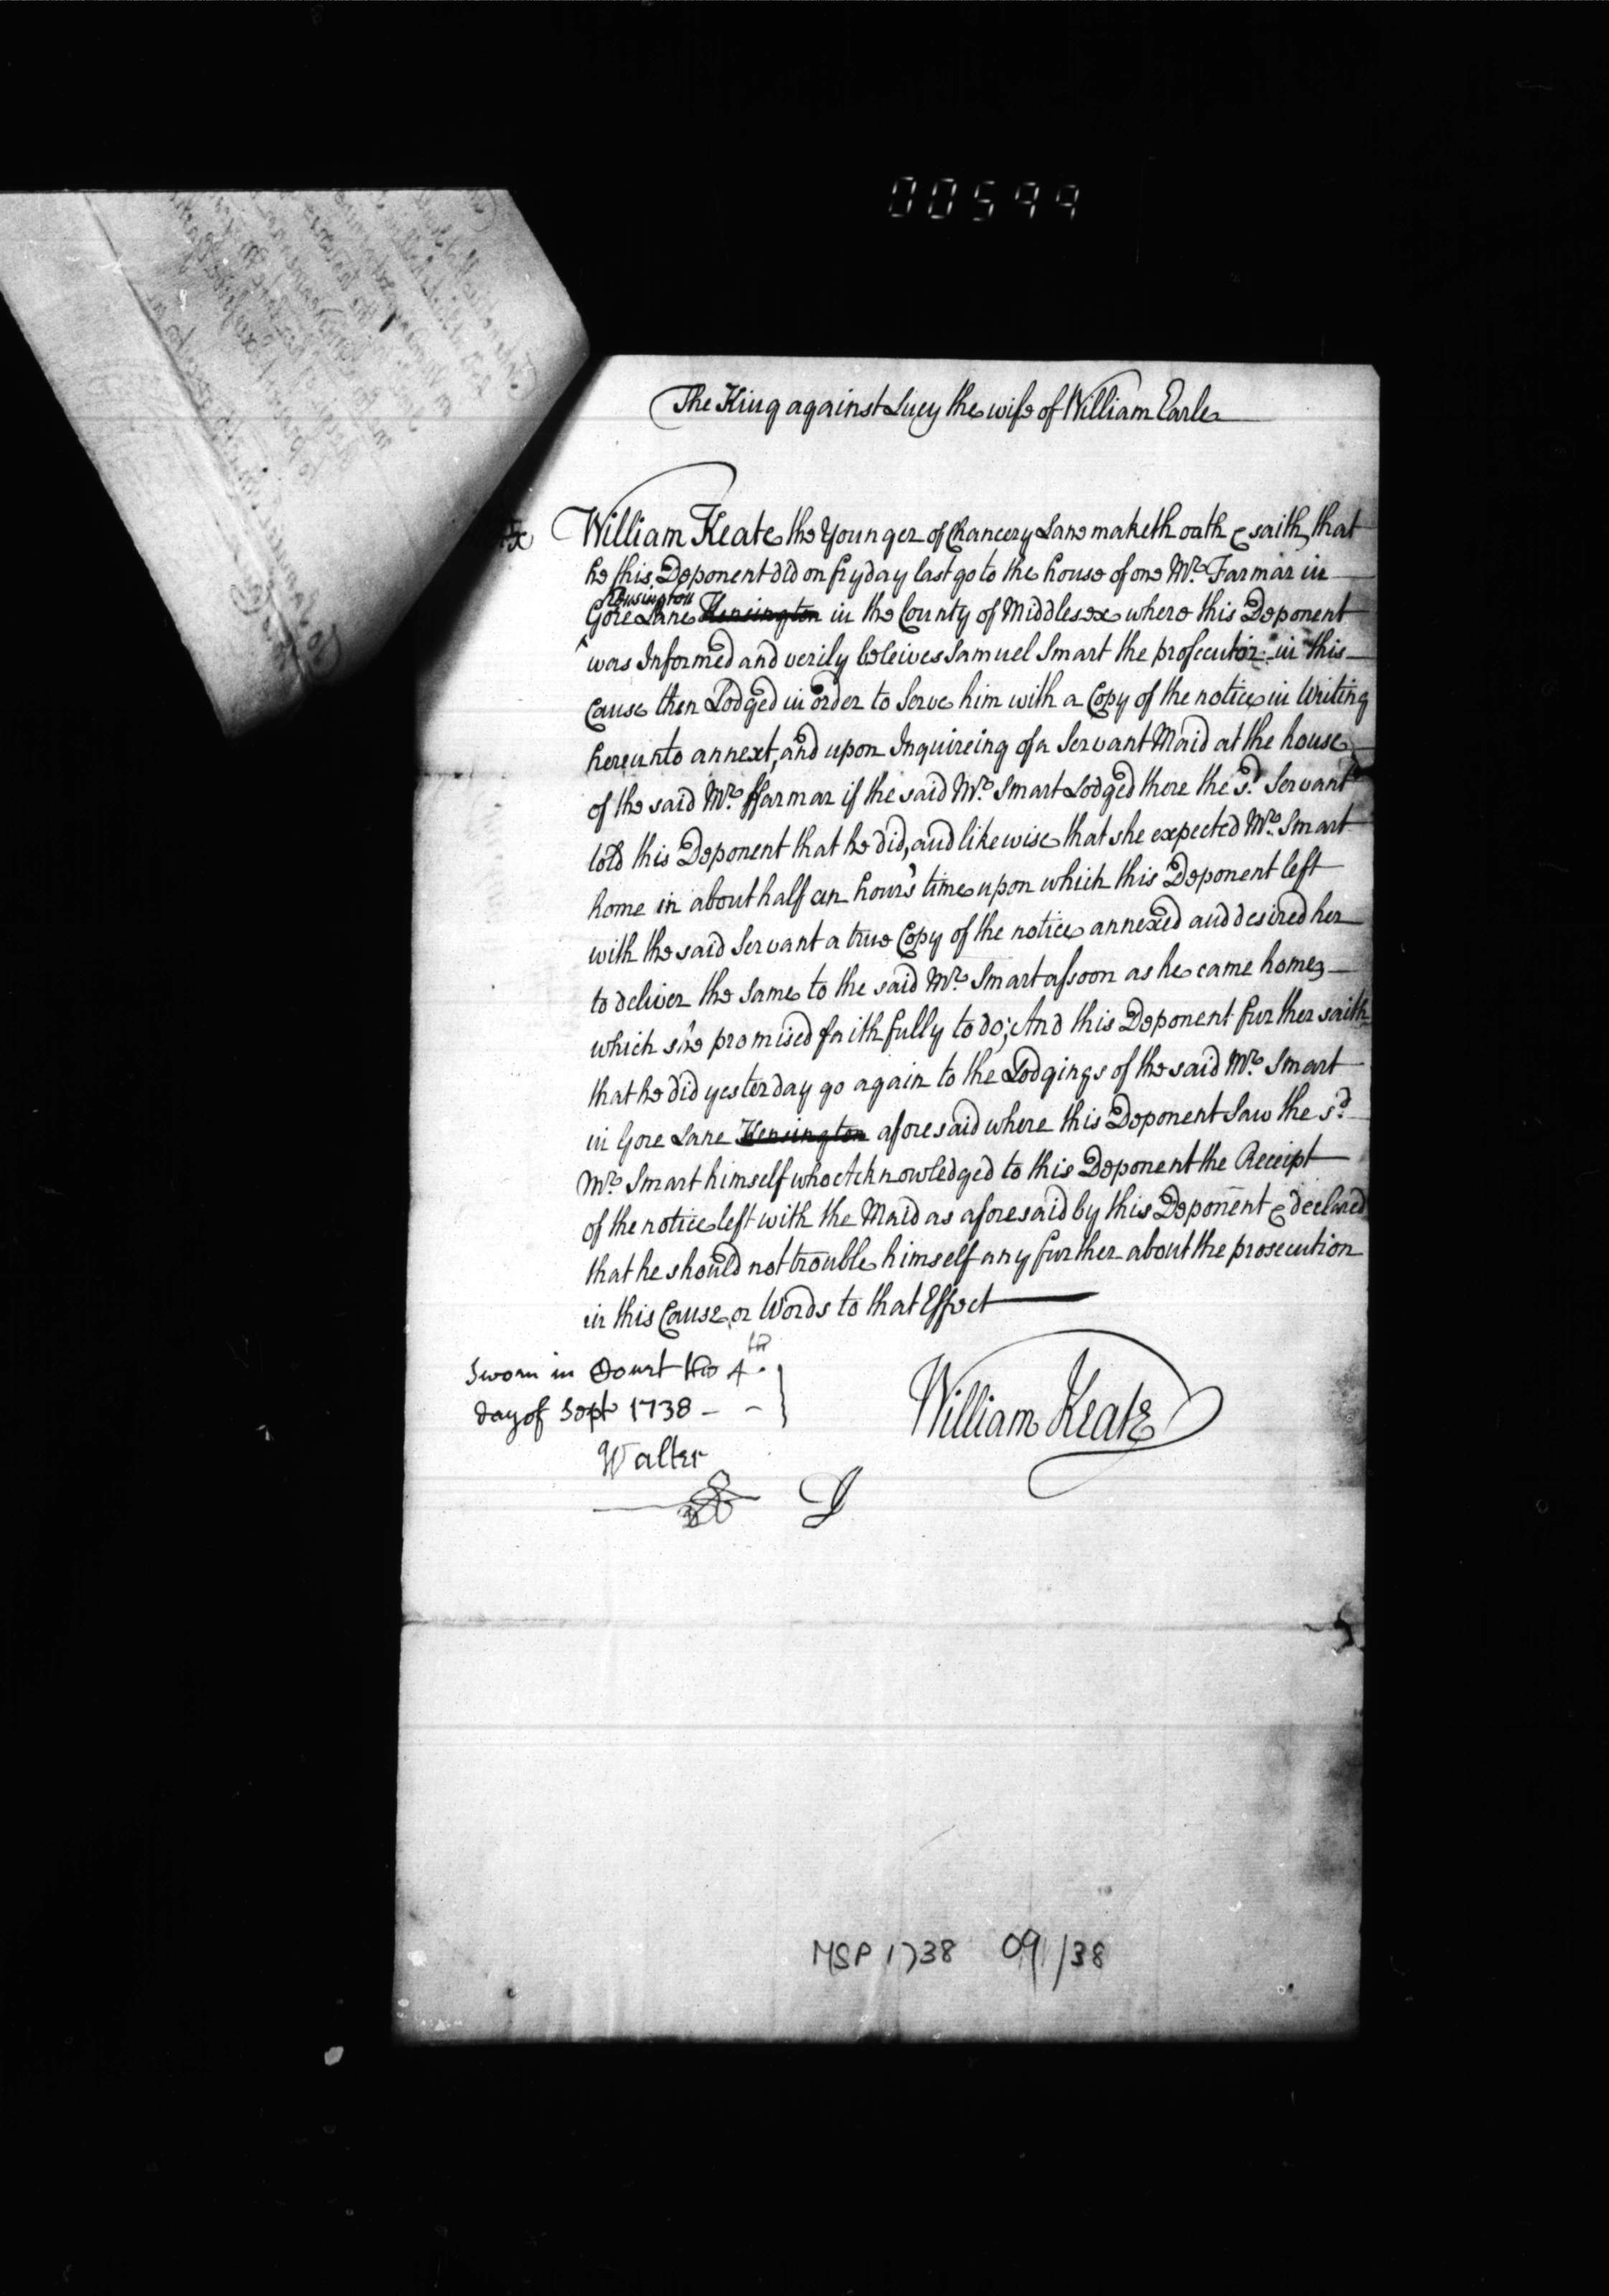 00599
The King against Lucy the wife of William Earle
William Keate the Younger of Chancery Lane maketh oath & saith that
he this Deponent did on fryday last go to the house of one Mr. Farmar in
Kensington
Gore Lane Kensington in the County of Middlesex where this Deponent
was Informed and verily beleives Samuel Smart the prosecutor in this
Cause then Lodged in order to Serve him with a Copy of the notice in Writing
hereunto annext, and upon Inquireing of a Servant Maid at the house
of the said Mr. ffarmar if the said Mr. Smart Lodged there the sd. Servant
told this Deponent that he did, and likewise that she expected Mr. Smart
home in about half an hour's time upon which this Deponent left
with the said Servant a true Copy of the notice annexed and desired her
to deliver the Same to the said Mr. Smart assoon as he came home,
which she promised faithfully to do; And this Deponent further saith
that he did yesterday go again to the Lodgings of the said Mr. Smart
in Gore Lane Kensington aforesaid where this Deponent Saw the sd.
Mr. Smart himself who Acknowledged to this Deponent the Receipt
of the notice left with the Maid as aforesaid by this Deponent & declared
that he should not trouble himself any further about the prosecution
in this Cause or Words to that Effect
Sworn in Court the 4th.
day of Sept 1738
Walter
William Keate
MSP 1738 09/38